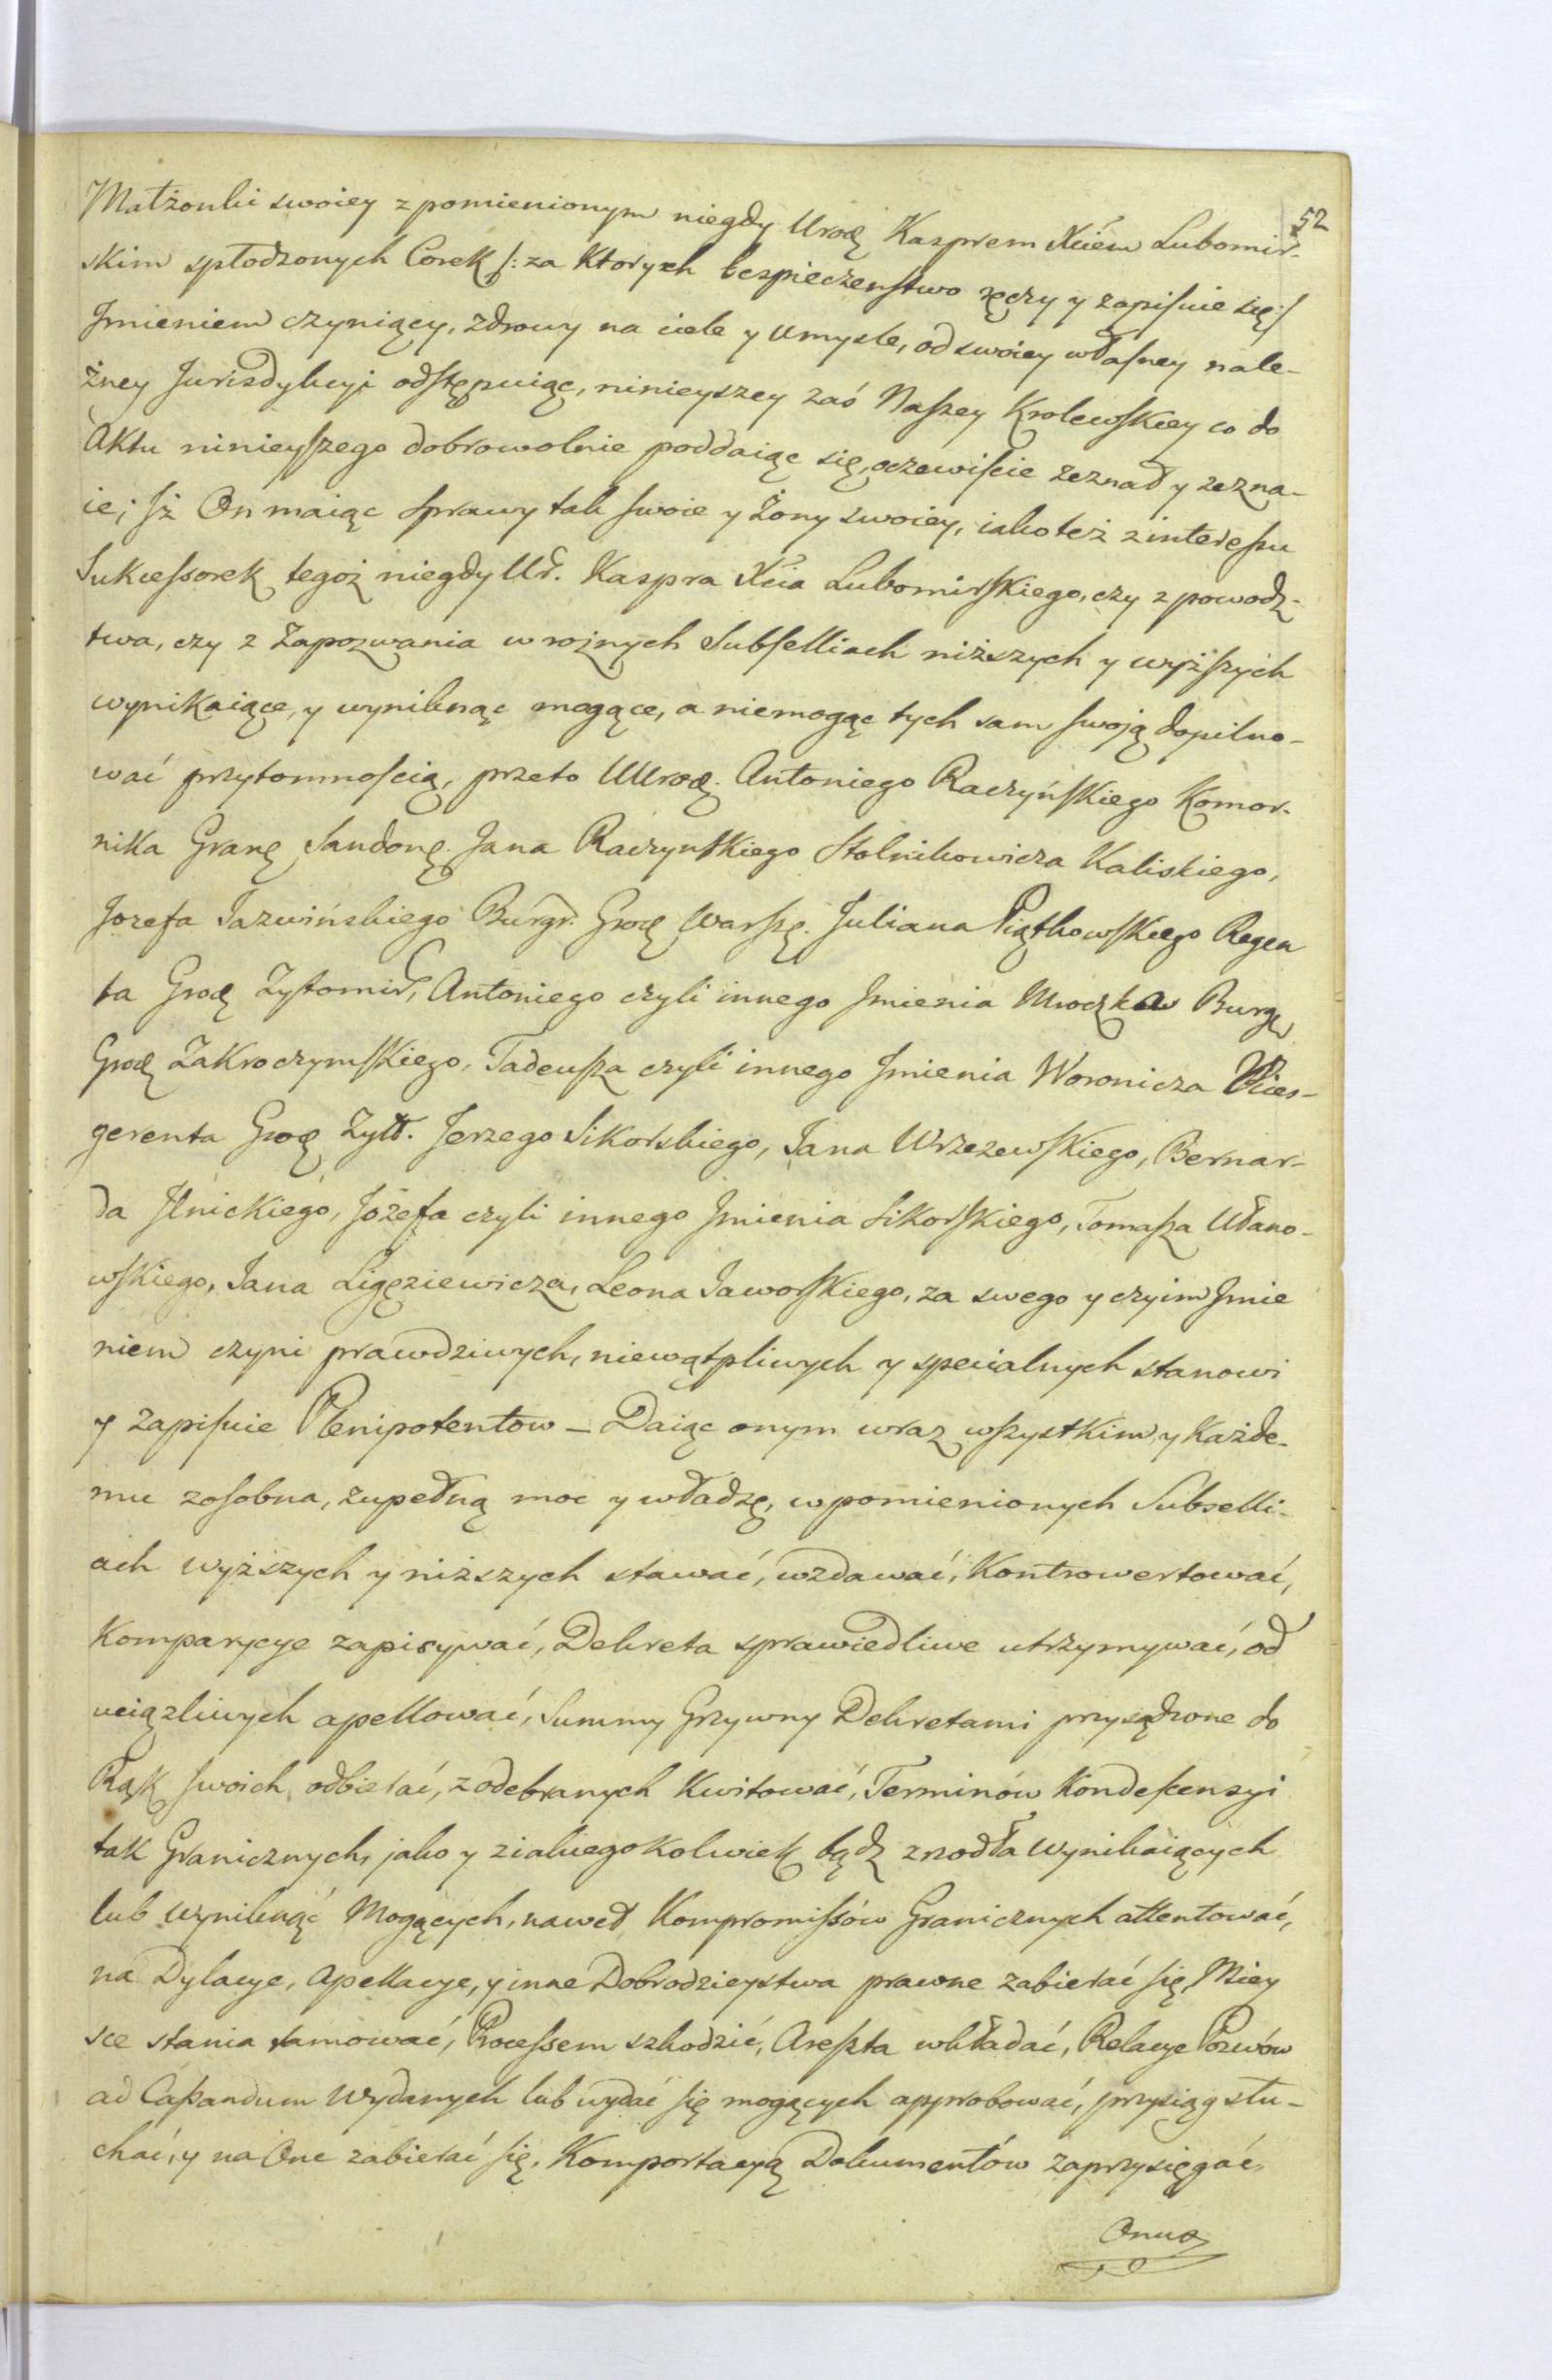 52
Małżonki swoiey z pomienionym niegdy Urodz Kasprem Xciem Lubomir-
skim spłodzonych Corek /: za Ktorych bezpieczenstwo ręczy y zapisuie się :/
Jmieniem czyniący, zdrowy na ciele y umysle, od swoiey własney nale-
żney Jurisdykcyi odstępuiąc, ninieyszey zaś Naszey Krolewskiey co do
Aktu ninieyszego dobrowolnie poddaiąc się, oczewiscie zeznał y zezna-
ie; Jż On maiąc sprawy tak swoie y Żony swoiey, iako też z interessu
Sukcessorek tegoż niegdy Ur. Kaspra Xcia Lubomirskiego, czy z powodz-
twa, czy z Zapozwania w roznych Subselliach niższych y wyższych
wynikaiące, y wyniknąc mogące, a niemogąc tych sam swoją dopilno-
wać przytomnoscią, przeto UUrodz. Antoniego Raczyńskiego Komor-
nika Gran Sandom. Jana Raczynskiego Stolnikowicza Kaliskiego,
Jozefa Jazwińskiego Burgr. Grodz Warsz. Juliana Piątkowskiego Regen
ta Grodz Zytomir, Antoniego czyli innego Jmienia Mroczka Burg
Grodz Zakroczymskiego, Tadeusza czyli innego Jmienia Woronicza Vices-
gerenta Grodz Zytt. Jerzego Sikorskiego, Jana Wrzezewskiego, Bernar-
da Jlnickiego, Józefa czyli innego Jmienia Sikorskiego, Tomasza Ułano-
wskiego, Jana Ligęziewicza, Leona Jaworskiego, za swego y czyim Jmie
niem czyni prawdziwych, niewątpliwych y specialnych stanowi
y zapisuie Plenipotentow _ Daiąc onym wraz wszystkim, y każde-
mu zosobna, zupełną moc y władzę, w pomienionych Subselli-
ach wyższych y niższych stawać, wzdawać, Kontrowertować,
Komparycye zapisywać, Dekreta sprawiedliwe utrzymywać, od
uciązliwych apellować, Summy Grzywny Dekretami przysądzone do
Rąk swoich odbierać, z odebranych Kwitować, Terminów Kondescensyi
tak Granicznych, jako y ziakiegokolwiek bądz zrzodła wynikaiących
lub wyniknąć Mogących, nawet Kompromissów Granicznych attentować,
na Dylacye, Apellacye, y inne Dobrodzieystwa prawne zabierać się, Miey
sce stania tamować, Processem szkodzić, Areszta wkładać, Relacye Pozwów
ad Cassandum Wydanych lub wydać się mogących approbować, przysiąg słu-
chać, y na One zabierać się. Komportacyą Dokumentów zaprzysięgać,